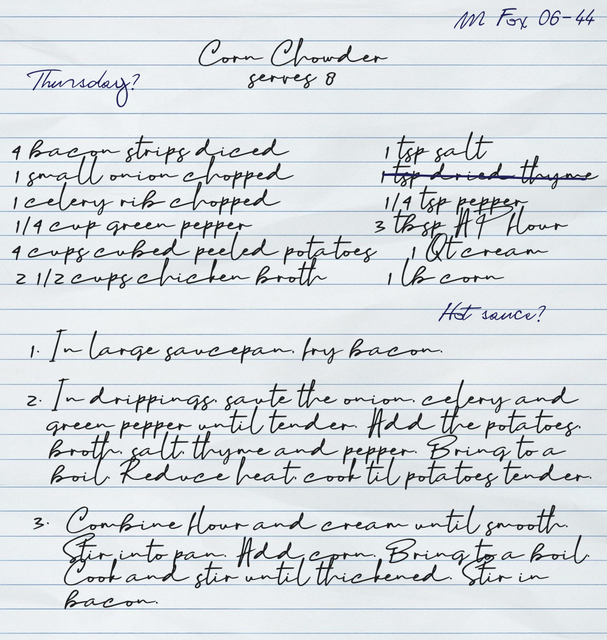 M Fox 06-44
Corn Chowder
serves 8
Thursday?
4 bacon strips diced
1 small onion chopped
1 celery rib chopped
1/4 cup green pepper
4 cups cubed peeled potatoes
2 1/2 cups chicken broth
1 tsp salt
1 tsp dried thyme
1/4 tsp pepper
3 tbsp AP flour
1 Qt cream
1 lb corn
Hot sauce?
1. In large saucepan, fry bacon.
2. In drippings, saute the onion, celery and
green pepper until tender. Add the potatoes,
broth, salt, thyme and pepper. Bring to a
boil. Reduce heat, cook til potatoes tender.
3. Combine flour and cream until smooth.
Stir into pan. Add corn. Bring to a boil.
Cook and stir until thickened. Stir in
bacon.